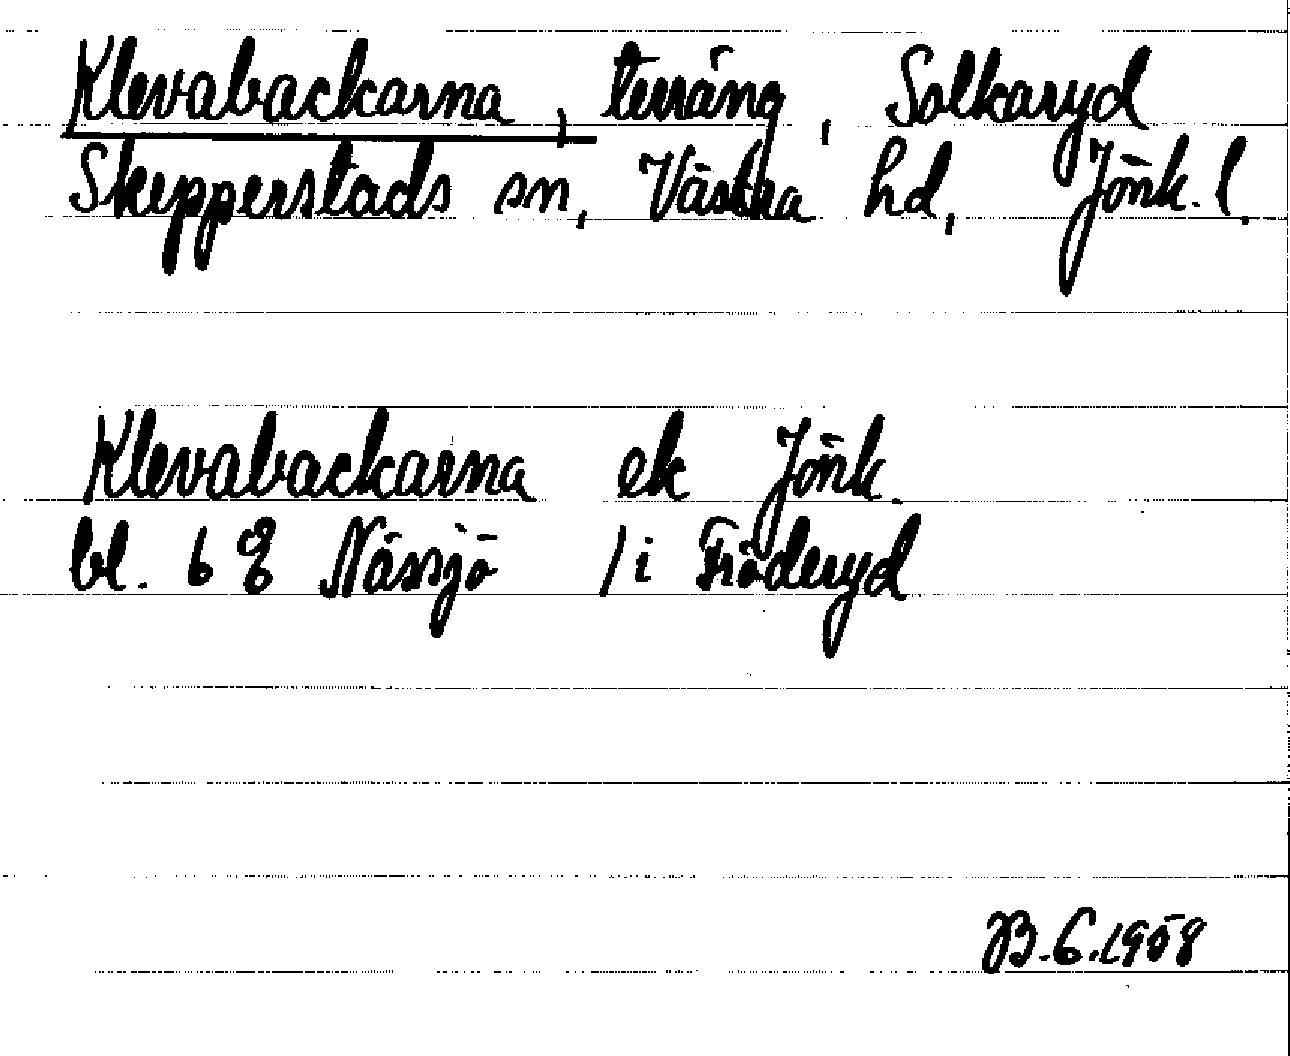 Klevabackarna, terräng, Solkaryd
Skepperstads sn, Västra hd, Jönk. l.
Klevabackarna ek Jönk.
bl. 6 8 Nässjö / i Fröderyd
B.G. 1958